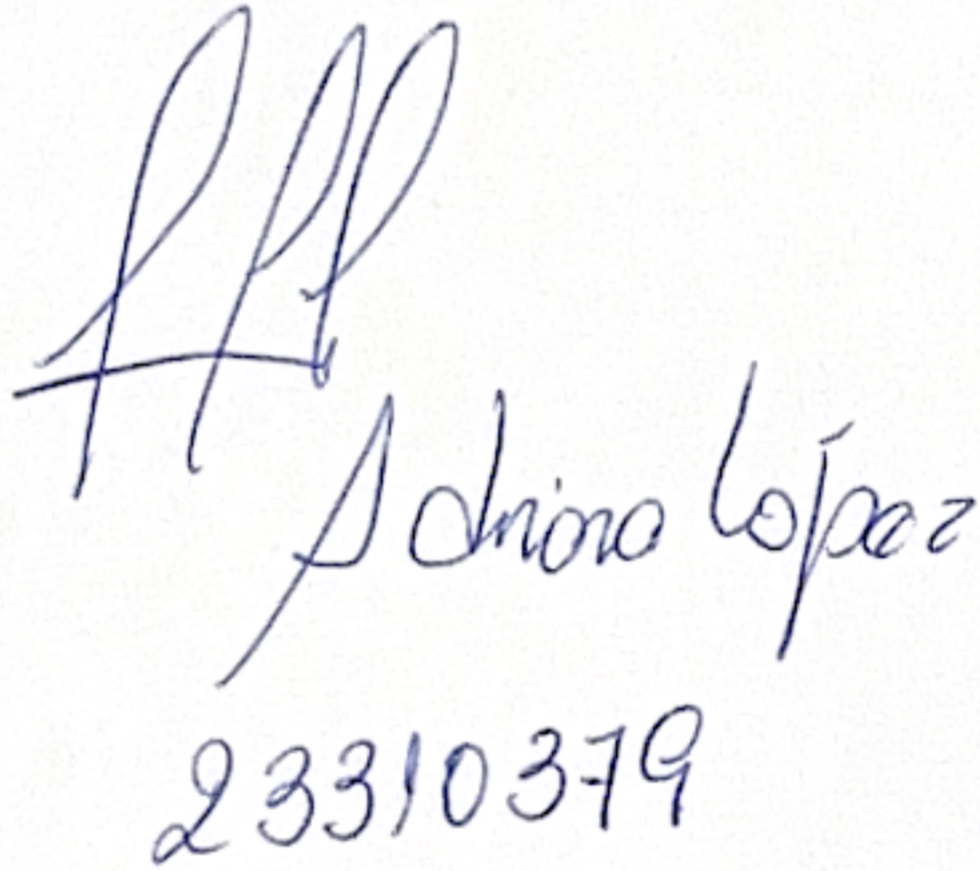 Adriana López
23310379